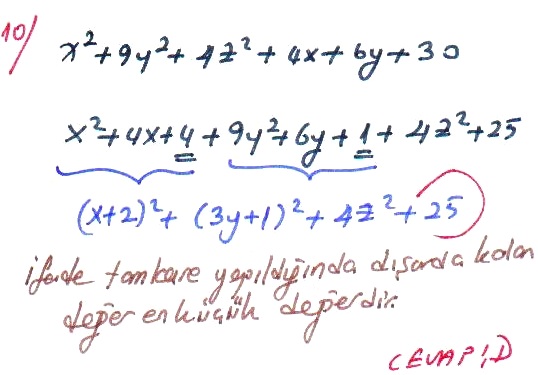 10/ x²+9y²+4z²+4x+6y+30
x²+4x+4+9y²+6y+1+4z²+25
(x+2)²+(3y+1)²+4z²+25
ifade tamkare yapıldığında dışarda kalan
değer en küçük değerdir.
CEVAP: D